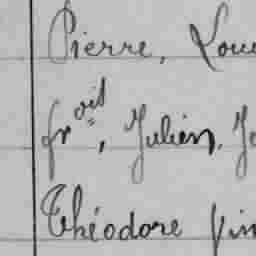 Pierre, Lou
frçois, Julien, J
Théodore